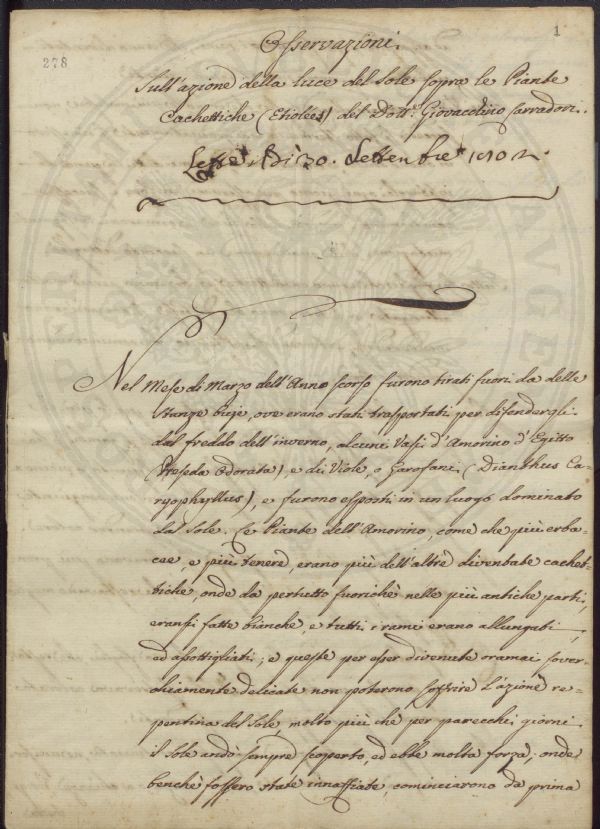 1
278
Osservazioni.
Sull'azione della luce del Sole sopra le Piante
Cachettiche (Etiolées) del Dott.e Giovacchino Carradori.
Lette Adì 30. Settembre 1802.
Nel Mese di Marzo dell'Anno scorso furono tirati fuori da delle
stanze buje, ove erano stati trasportati per difendergli
dal freddo dell'inverno, alcuni Vasi d'Amorino d'Egitto
(Reseda Odorata), e di Viole, o Garofani (Dianthus Ca-
ryophyllus), e furono esposti in un luogo dominato
dal Sole. Le Piante dell'Amorino, come che più erba-
cee, e più tenere, erano più dell'altre diventate cachet-
tiche, onde da pertutto fuorichè nelle più antiche parti,
eransi fatte bianche, e tutti i rami erano allungati
ed assottigliati; e queste per esser divenute oramai sover-
chiamente delicate non poterono soffrire l'azione re-
pentina del Sole, molto più che per parecchi giorni
il Sole andò sempre scoperto, ed ebbe molta forza; onde
benchè fossero state innaffiate, cominciarono da prima